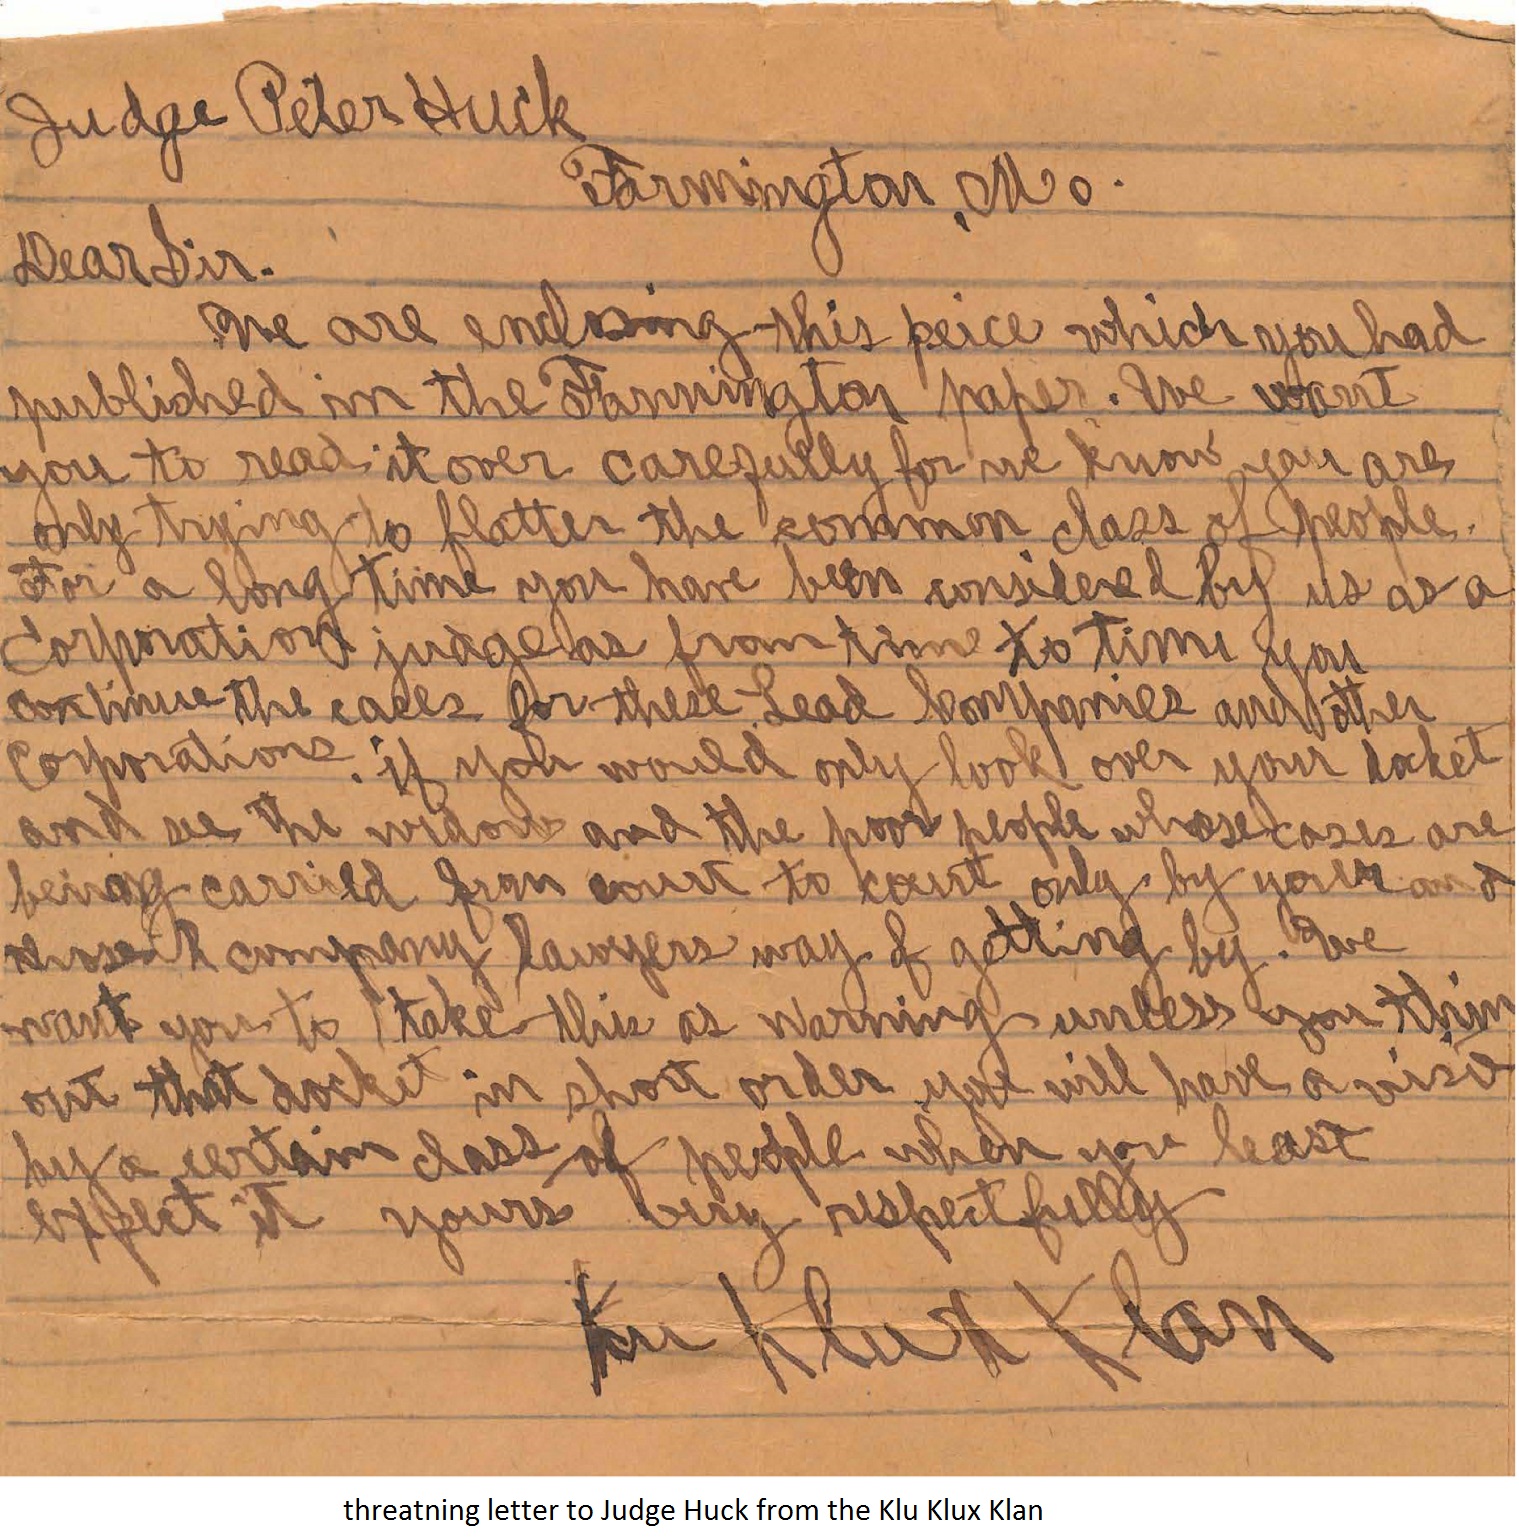 Judge Peter Huck
Farmington, Mo.
Dear Sir.
We are enclosing this peice which you had
published in the Farmington paper. We want
you to read it over carefully for we know you are
only trying to flatter the common class of people.
For a long time you have been considered by us as a
Corporation judge as from time to time you
continue the cases for these Lead Companies and other
Corporations. if you would only look over your docket
and see the widows and the poor people whose cases are
being carried from court to court only by your and
company lawyers way of getting by. We
want you to take this as warning unless you thin
out that docket in short order you will have a visit
by a certain class of people when you least
expect it yours very respectfully
Ku Klux Klan
threatning letter to Judge Huck from the Klu Klux Klan